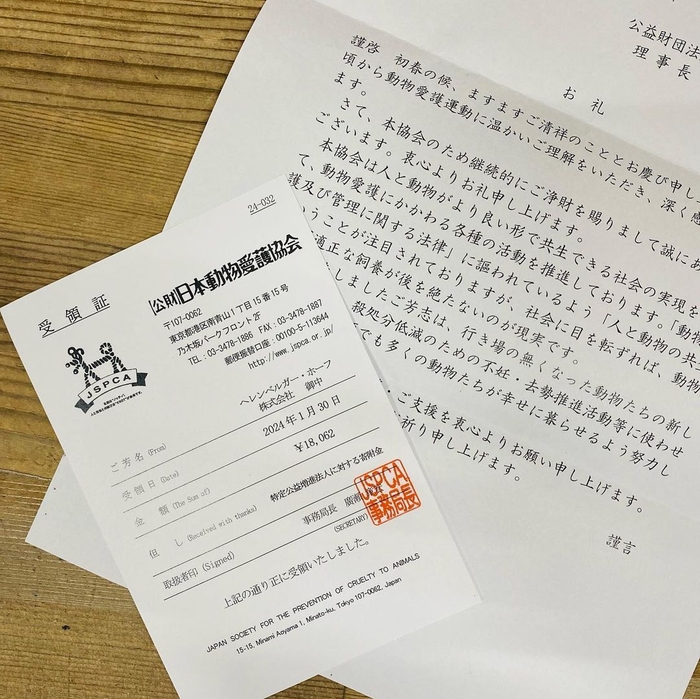 公益財団法
理事長
お礼
謹啓 初春の候、ますますご清祥のこととお慶び申し
頃から動物愛護運動に温かいご理解をいただき、深く感
ます。
さて、本協会のため継続的にご浄財を賜りまして誠にあ
ございます。衷心よりお礼申し上げます。
本協会は人と動物がより良い形で共生できる社会の実現を
て、動物愛護にかかわる各種の活動を推進しております。「動物
護及び管理に関する法律」に謳われているよう「人と動物の共
うことが注目されておりますが、社会に目を転ずれば、動物
適正な飼養が後を絶たないのが現実です。
しましたご芳志は、行き場の無くなった動物たちの新し
殺処分低減のための不妊・去勢推進活動等に使わせ
でも多くの動物たちが幸せに暮らせるよう努力し
ご支援を衷心よりお願い申し上げます。
祈り申し上げます。
謹言
24-032
受領証
(公財)日本動物愛護協会
〒107-0062
東京都港区南青山1丁目15番15号
乃木坂パークフロント2F
TEL:03-3478-1886 FAX:03-3478-1887
郵便振替口座:00100-5-113644
http://www.jspca.or.jp/
JSPCA
ご芳名(From)
ヘレンベルガー・ホーフ
株式会社 御中
受領日(Date)
2024年1月30日
金額(The Sum of)
¥18,062
但し(Received with thanks)
特定公益増進法人に対する寄附金
取扱者印(Signed)
事務局長 廣瀬
(SECRETARY)
JSPCA
事務局長
上記の通り正に受領いたしました。
JAPAN SOCIETY FOR THE PREVENTION OF CRUELTY TO ANIMALS
15-15, Minami Aoyama 1, Minato-ku, Tokyo 107-0062, Japan